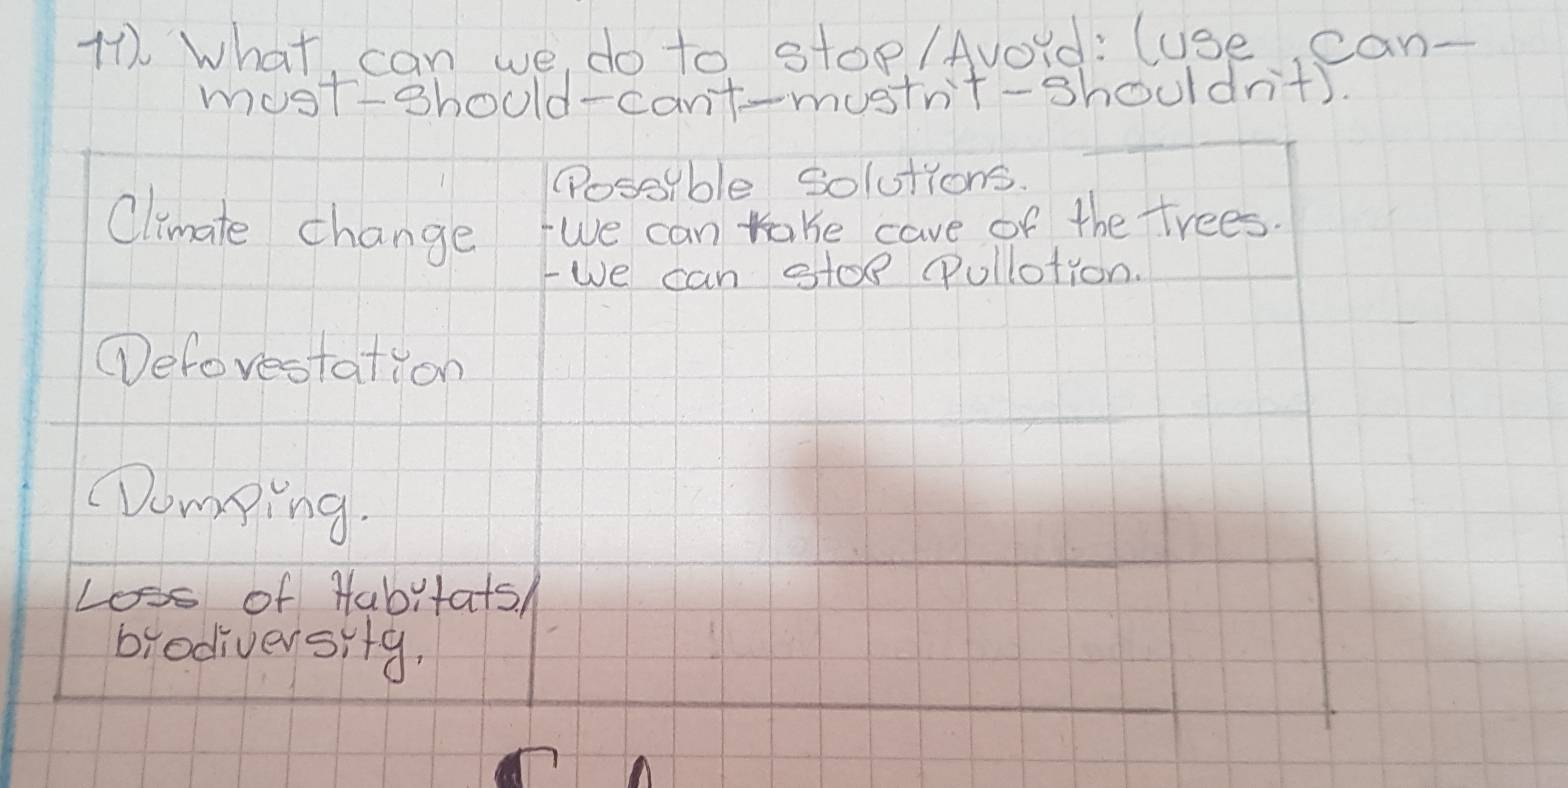 11). What can we do to stop/Avoid: (use can-
must-should-can't-mustn't-shouldn't).
Possible solutions.
Climate change
-We can take cave of the trees.
-We can stop Pullotion.
Deforestation
Dumping.
Loss of Habitats/
biodiversity.